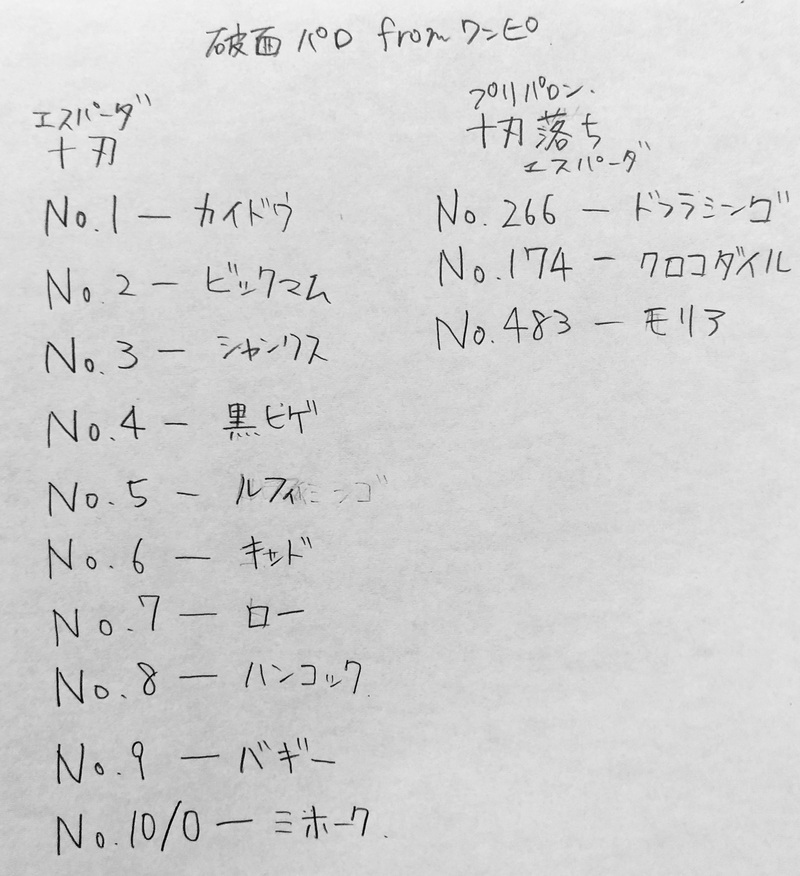 破面パロ fromワンピ
エスパーダ
十刃
No.1 ー カイドウ
No.2 ー ビックマム
No.3 ー シャンクス
No.4 ー 黒ヒゲ
No.5 ー ルフィ
No.6 ー キッド
No.7 ー ロー
No.8 ー ハンコック
No.9 ー バギー
No.10/0 ー ミホーク
プリバロン
十刃落ち
エスパーダ
No.266 ー ドフラミンゴ
No.174 ー クロコダイル
No.483 ー モリア